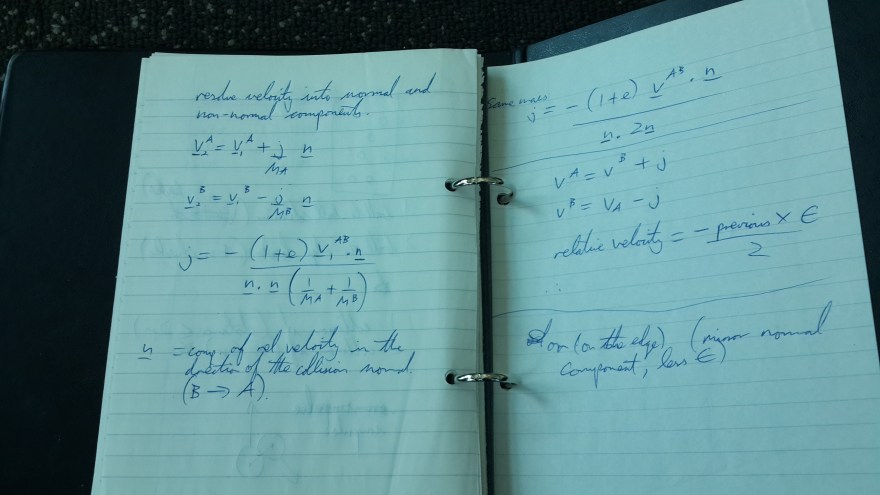 resolve velocity into normal and
non-normal components.
v₂ᴬ = v₁ᴬ + j/MA n
v₂ᴮ = v₁ᴮ - j/MB n
j = - (1+e) v₁ᴬᴮ . n
n . n (1/MA + 1/MB)
n = comp of rel velocity in the
direction of the collision normal.
(B → A).
Same mass
j = - (1+e) vᴬᴮ . n
n . 2n
vᴬ = vᴮ + j
vᴮ = vA - j
relative velocity = - previous × ϵ
2
or (on the edge) (mirror normal
component, less ϵ)